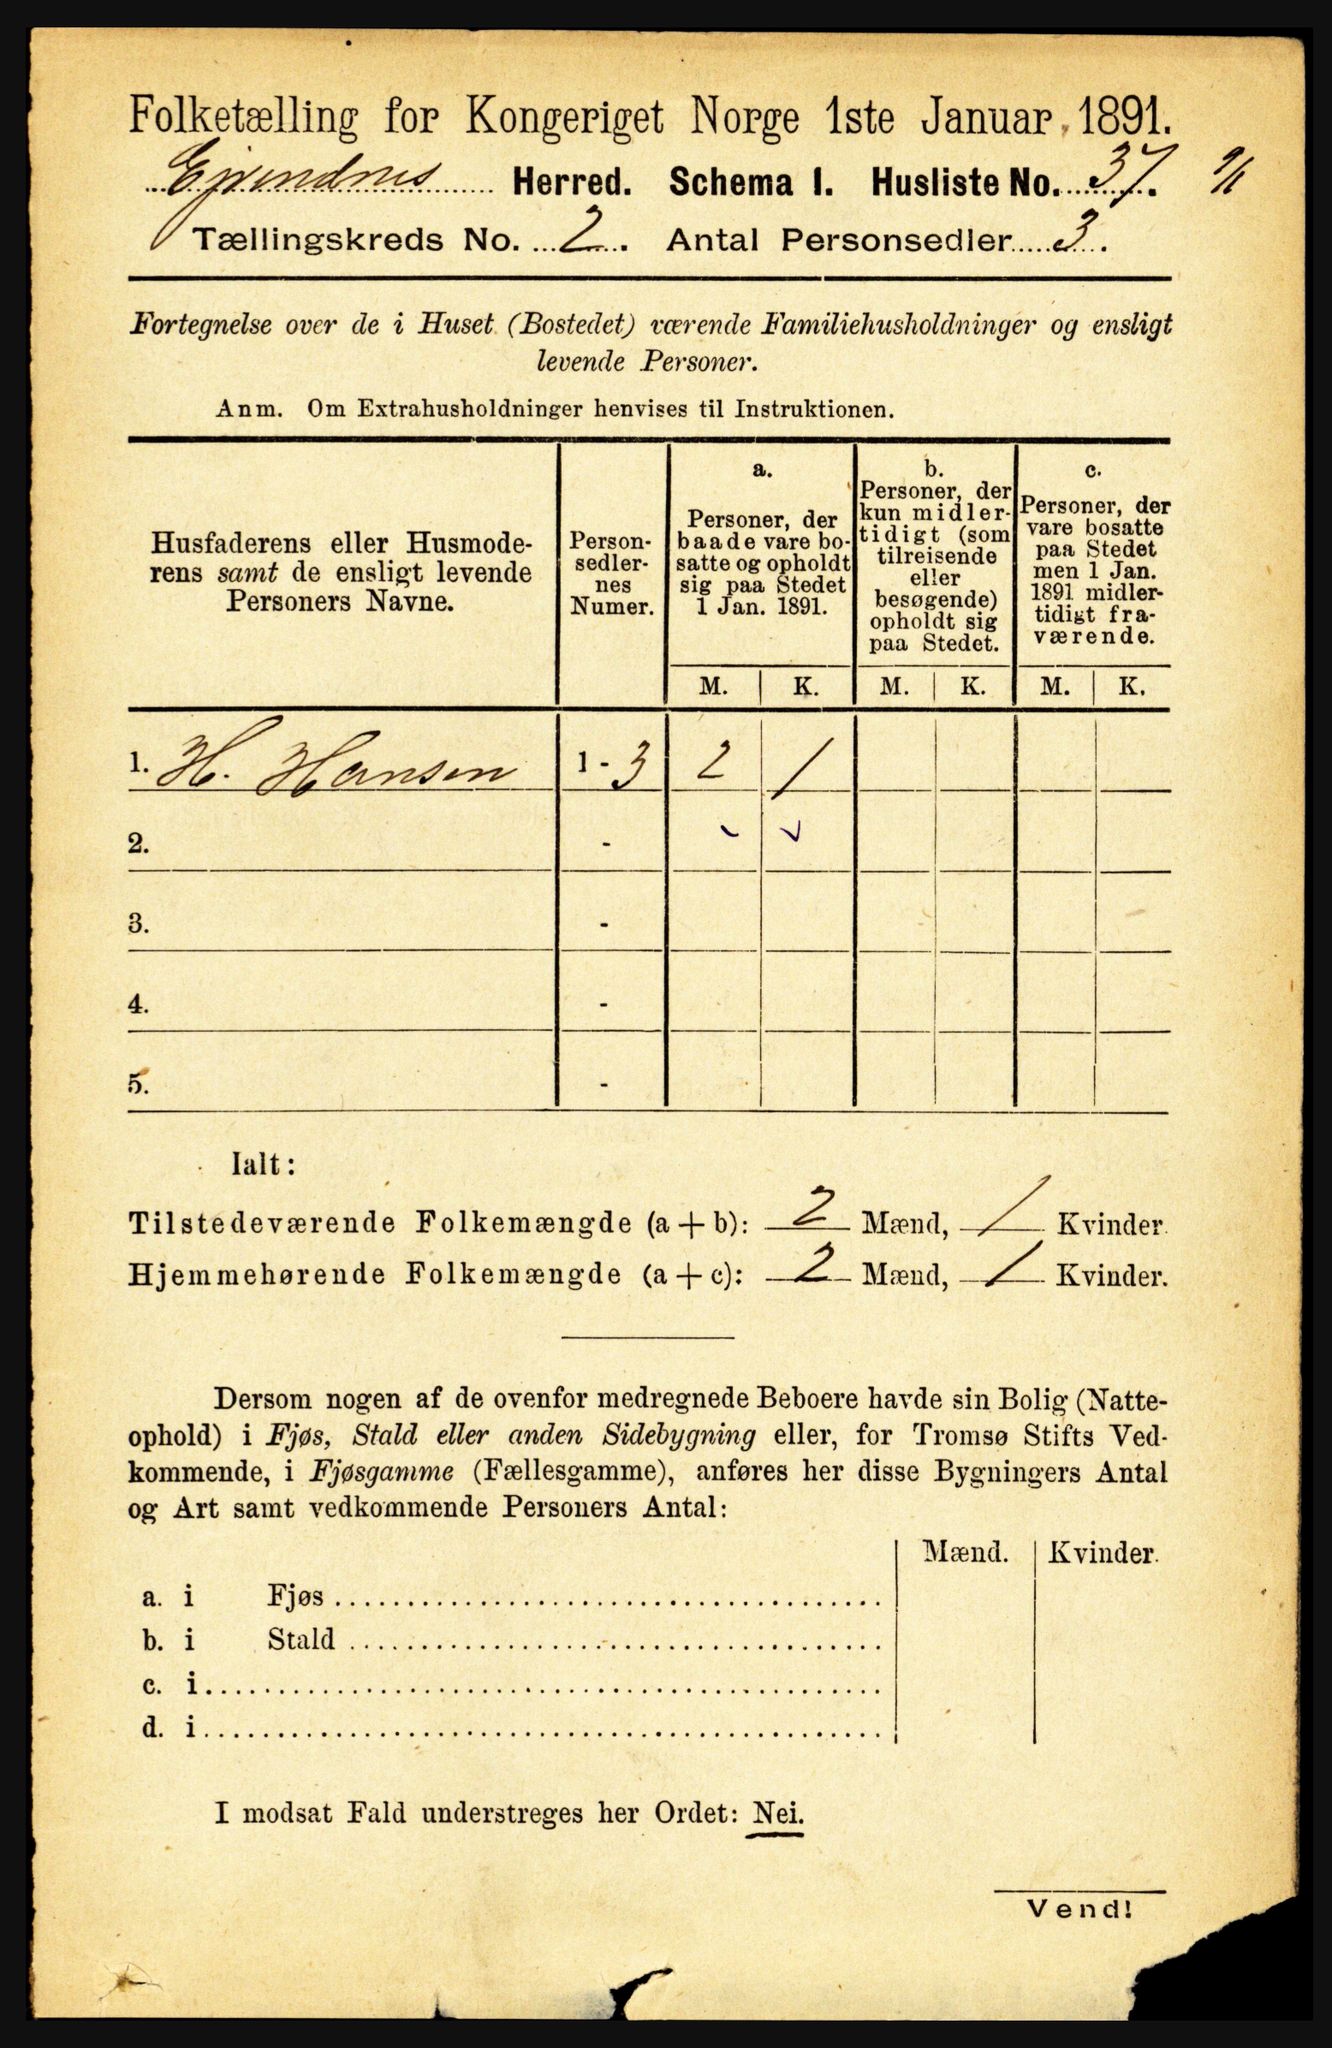 Folketælling for Kongeriget Norge 1ste Januar 1891.
Ejvindnes Herred. Schema I. Husliste No. 37.
Tællingskreds No. 2. Antal Personsedler 3.
Fortegnelse over de i Huset (Bostedet) værende Familiehusholdninger og ensligt
levende Personer.
Anm. Om Extrahusholdninger henvises til Instruktionen.
Husfaderens eller Husmode-
rens samt de ensligt levende
Personers Navne.
Person-
sedler-
nes
Numer.
a.
Personer, der
baade vare bo-
satte og opholdt
sig paa Stedet
1 Jan. 1891.
b.
Personer, der
kun midler-
tidigt (som
tilreisende
eller
besøgende)
opholdt sig
paa Stedet.
c.
Personer, der
vare bosatte
paa Stedet
men 1 Jan.
1891 midler-
tidigt fra-
værende.
M. K. M. K. M. K.
1. H. Hansen 1 - 3 2 1
2. -
3. -
4. -
5. -
Ialt:
Tilstedeværende Folkemængde (a + b): 2 Mænd, 1 Kvinder.
Hjemmehørende Folkemængde (a + c): 2 Mænd, 1 Kvinder.
Dersom nogen af de ovenfor medregnede Beboere havde sin Bolig (Natte-
ophold) i Fjøs, Stald eller anden Sidebygning eller, for Tromsø Stifts Ved-
kommende, i Fjøsgamme (Fællesgamme), anføres her disse Bygningers Antal
og Art samt vedkommende Personers Antal:
Mænd. Kvinder.
a. i Fjøs
b. i Stald
c. i
d. i
I modsat Fald understreges her Ordet: Nei.
Vend!